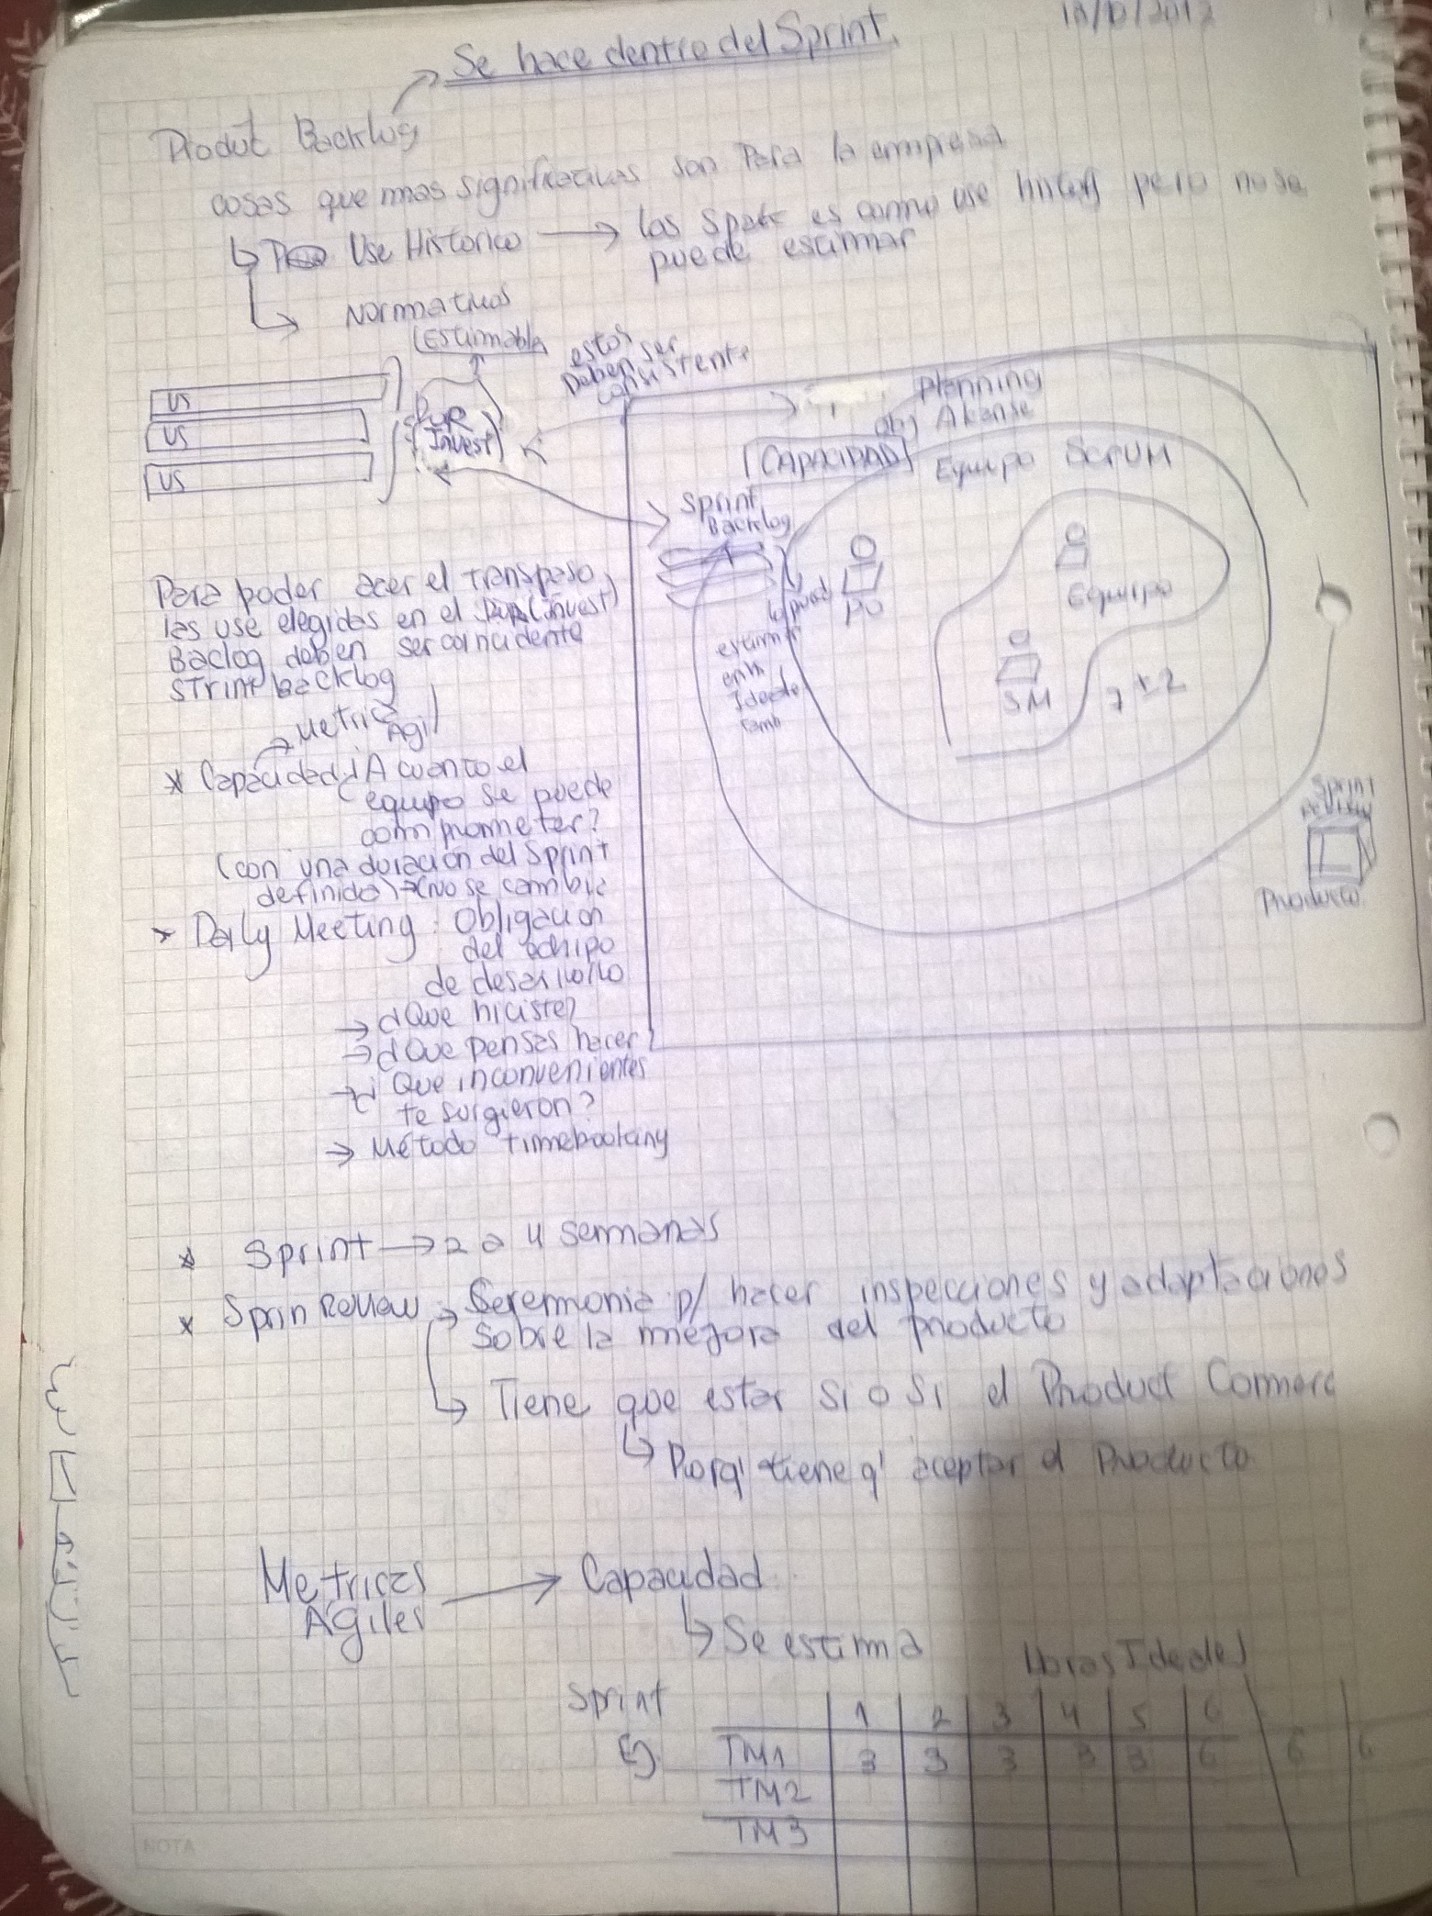 Se hace dentro del Sprint.
Produt Backlog
cosas que mas significativas son Para la empresa
Use Historico → las Spake es como use history pero no se
puede estimar
Normativas
Estimable
estos
Deben ser
consistente
US
US
US
DUR
(Invest)
Planning
obj Akanse
CAPACIDAD
Equipo SCRUM
Sprint
Backlog
PO
Equipo
SM
7 ± 2
estimar
en h
Ideales
Sprint
Review
Producto
Para poder acer el Transpaso
las use elegidas en el (invest)
Baclog deben ser coincidente
STrint backlog
Metric
Agil
* Capacidad ¿A cuanto el
equipo se puede
comprometer?
(con una duración del Sprint
definida) → (No se cambia
* Daily Meeting: Obligacion
del echipo
de desarrollo
→ ¿Que hiciste?
→ ¿Que pensas hacer?
→ ¿Que inconvenientes
te surgieron?
→ Método timebooking
* Sprint → 2 a 4 semanas
* Sprin Review: → Seremonia p/ hacer inspecciones y adaptaciones
Sobre la mejora del producto
Tiene que estar si o si el Product
Porq' tiene q' aceptar el Producto
Metricas
Agiles → Capacidad
Se estima
Horas Ideales
Sprint
1 2 3 4 5 6
Ej. TM1 3 3 3 3 3 6 6 6
TM2
TM3
NOTA